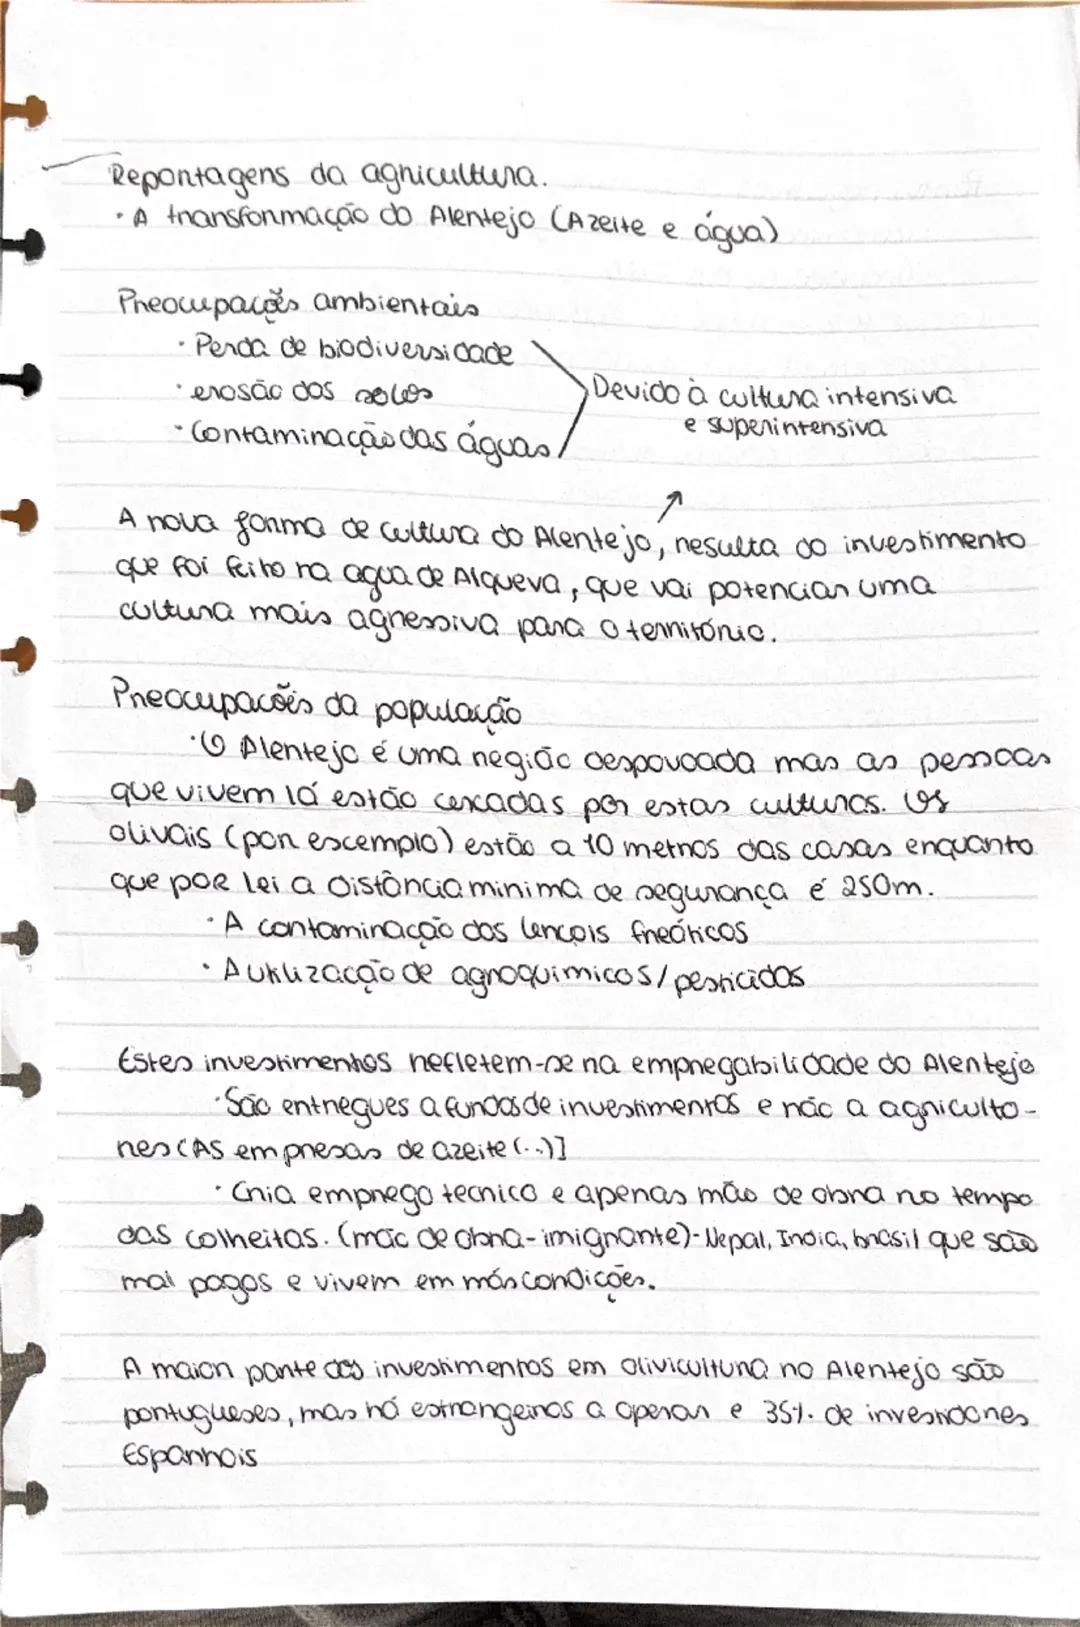 Reportagens da agricultura.
· A transformação do Alentejo (Azeite e água)
Preocupações ambientais
· Perda de biodiversidade
· erosão dos solos
· Contaminação das águas
Devido à cultura intensiva
e superintensiva
A nova forma de cultura do Alentejo, resulta do investimento
que foi feito na agua de Alqueva, que vai potenciar uma
cultura mais agressiva para o território.
Preocupacões da população
· O Alentejo é uma região despovoada mas as pessoas
que vivem lá estão cercadas por estas culturas. Os
olivais (por escemplo) estão a 10 metros das casas enquanto
que por lei a distância minima de segurança é 250m.
· A contaminação dos lençois freáticos
· A utilização de agroquimicos/pesticidas
Estes investimentos refletem-se na empregabilidade do Alentejo
· São entregues a fundos de investimentos e não a agriculto-
res (AS empresas de azeite (...)]
· Cria emprego tecnico e apenas mão de obra no tempo
das colheitas. (mão de obra-imigrante)-Nepal, India, brasil que são
mal pagos e vivem em más condições.
A maior parte dos investimentos em olivicultura no Alentejo são
portugueses, mas há estrangeiros a operar e 35% de investidores
Espanhois